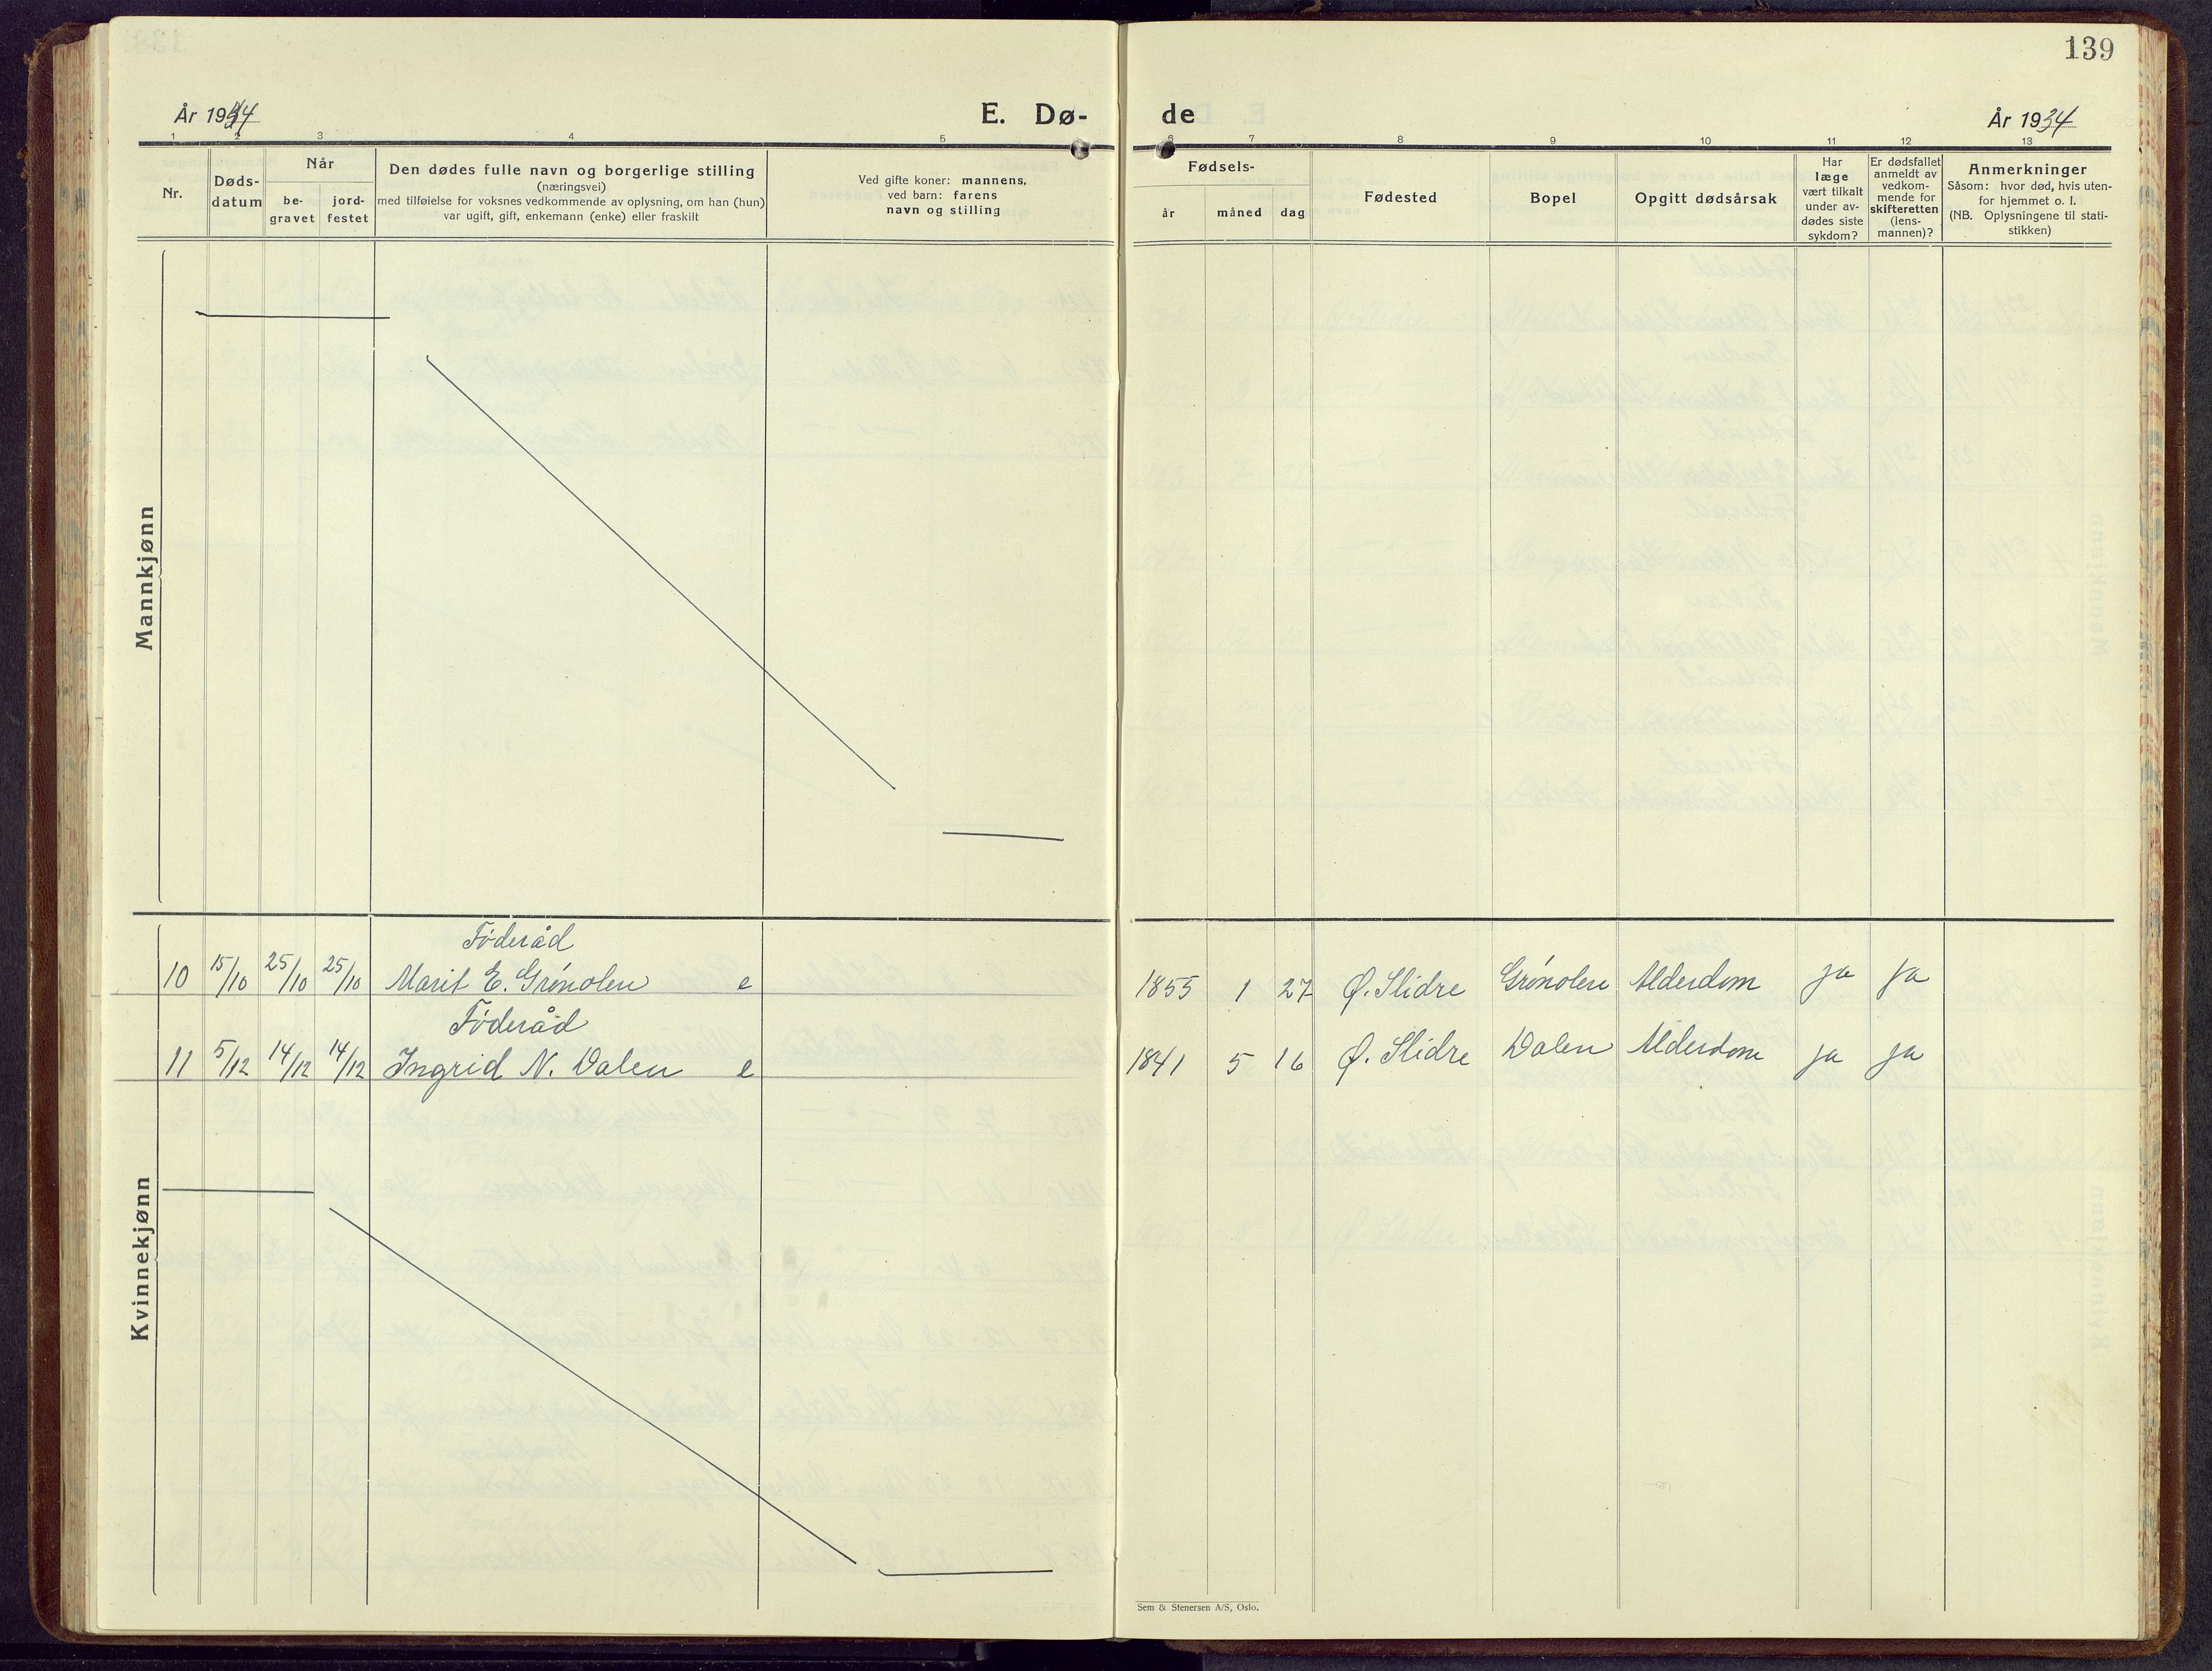 139
År 1934
E. Dø-
de
År 1934
1 2 3 4 5 6 7 8 9 10 11 12 13
Nr.
Døds-
datum
Når
be-
gravet
jord-
festet
Den dødes fulle navn og borgerlige stilling
(næringsvei)
med tilføielse for voksnes vedkommende av oplysning, om han (hun)
var ugift, gift, enkemann (enke) eller fraskilt
Ved gifte koner: mannens,
ved barn: farens
navn og stilling
Fødsels-
år måned dag
Fødested
Bopel
Opgitt dødsårsak
Har
læge
vært tilkalt
under av-
dødes siste
sykdom?
Er dødsfallet
anmeldt av
vedkom-
mende for
skifteretten
(lens-
mannen)?
Anmerkninger
Såsom: hvor død, hvis uten-
for hjemmet o. l.
(NB. Oplysningene til stati-
stikken)
Mannkjønn
Føderåd
10 15/10 25/10 25/10 Marit E. Grønolen e 1855 1 27 Ø. Slidre Grønolen Alderdom ja ja
Føderåd
11 5/12 14/12 14/12 Ingrid N. Dalen e 1841 5 16 Ø. Slidre Dalen Alderdom ja ja
Kvinnekjønn
Sem & Stenersen A/S, Oslo.